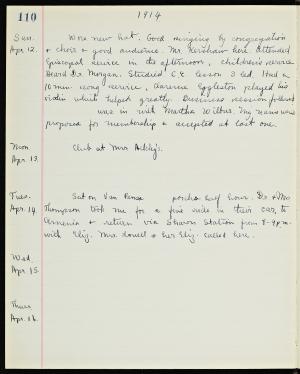 110 1914
Sun. Wore new hat. Good singing by congregation
Apr. 12. & choir & good audience. Mr. Kershaw here. Attended
Episcopal service in the afternoon, children's service
Heard Dr. Morgan. Studied C.E. lesson & led. Had a
10 min. song service, Clarence Eggleston played his
violin which helped greatly. Business session followed
me in with Martha Wilbur. My name was
proposed for membership & accepted at last one.
Mon. Club at Mrs.
Apr. 13.
Tues. Sat on Van porches half hour. Dr. & Mrs.
Apr. 14. Thompson took me for a fine ride in their car, to
Armenia & return via Sharon Station from 8-9 p.m.
with Eliz. Mrs. Lovell & her Eliz. called here.
Wed.
Apr. 15.
Thurs.
Apr. 16.